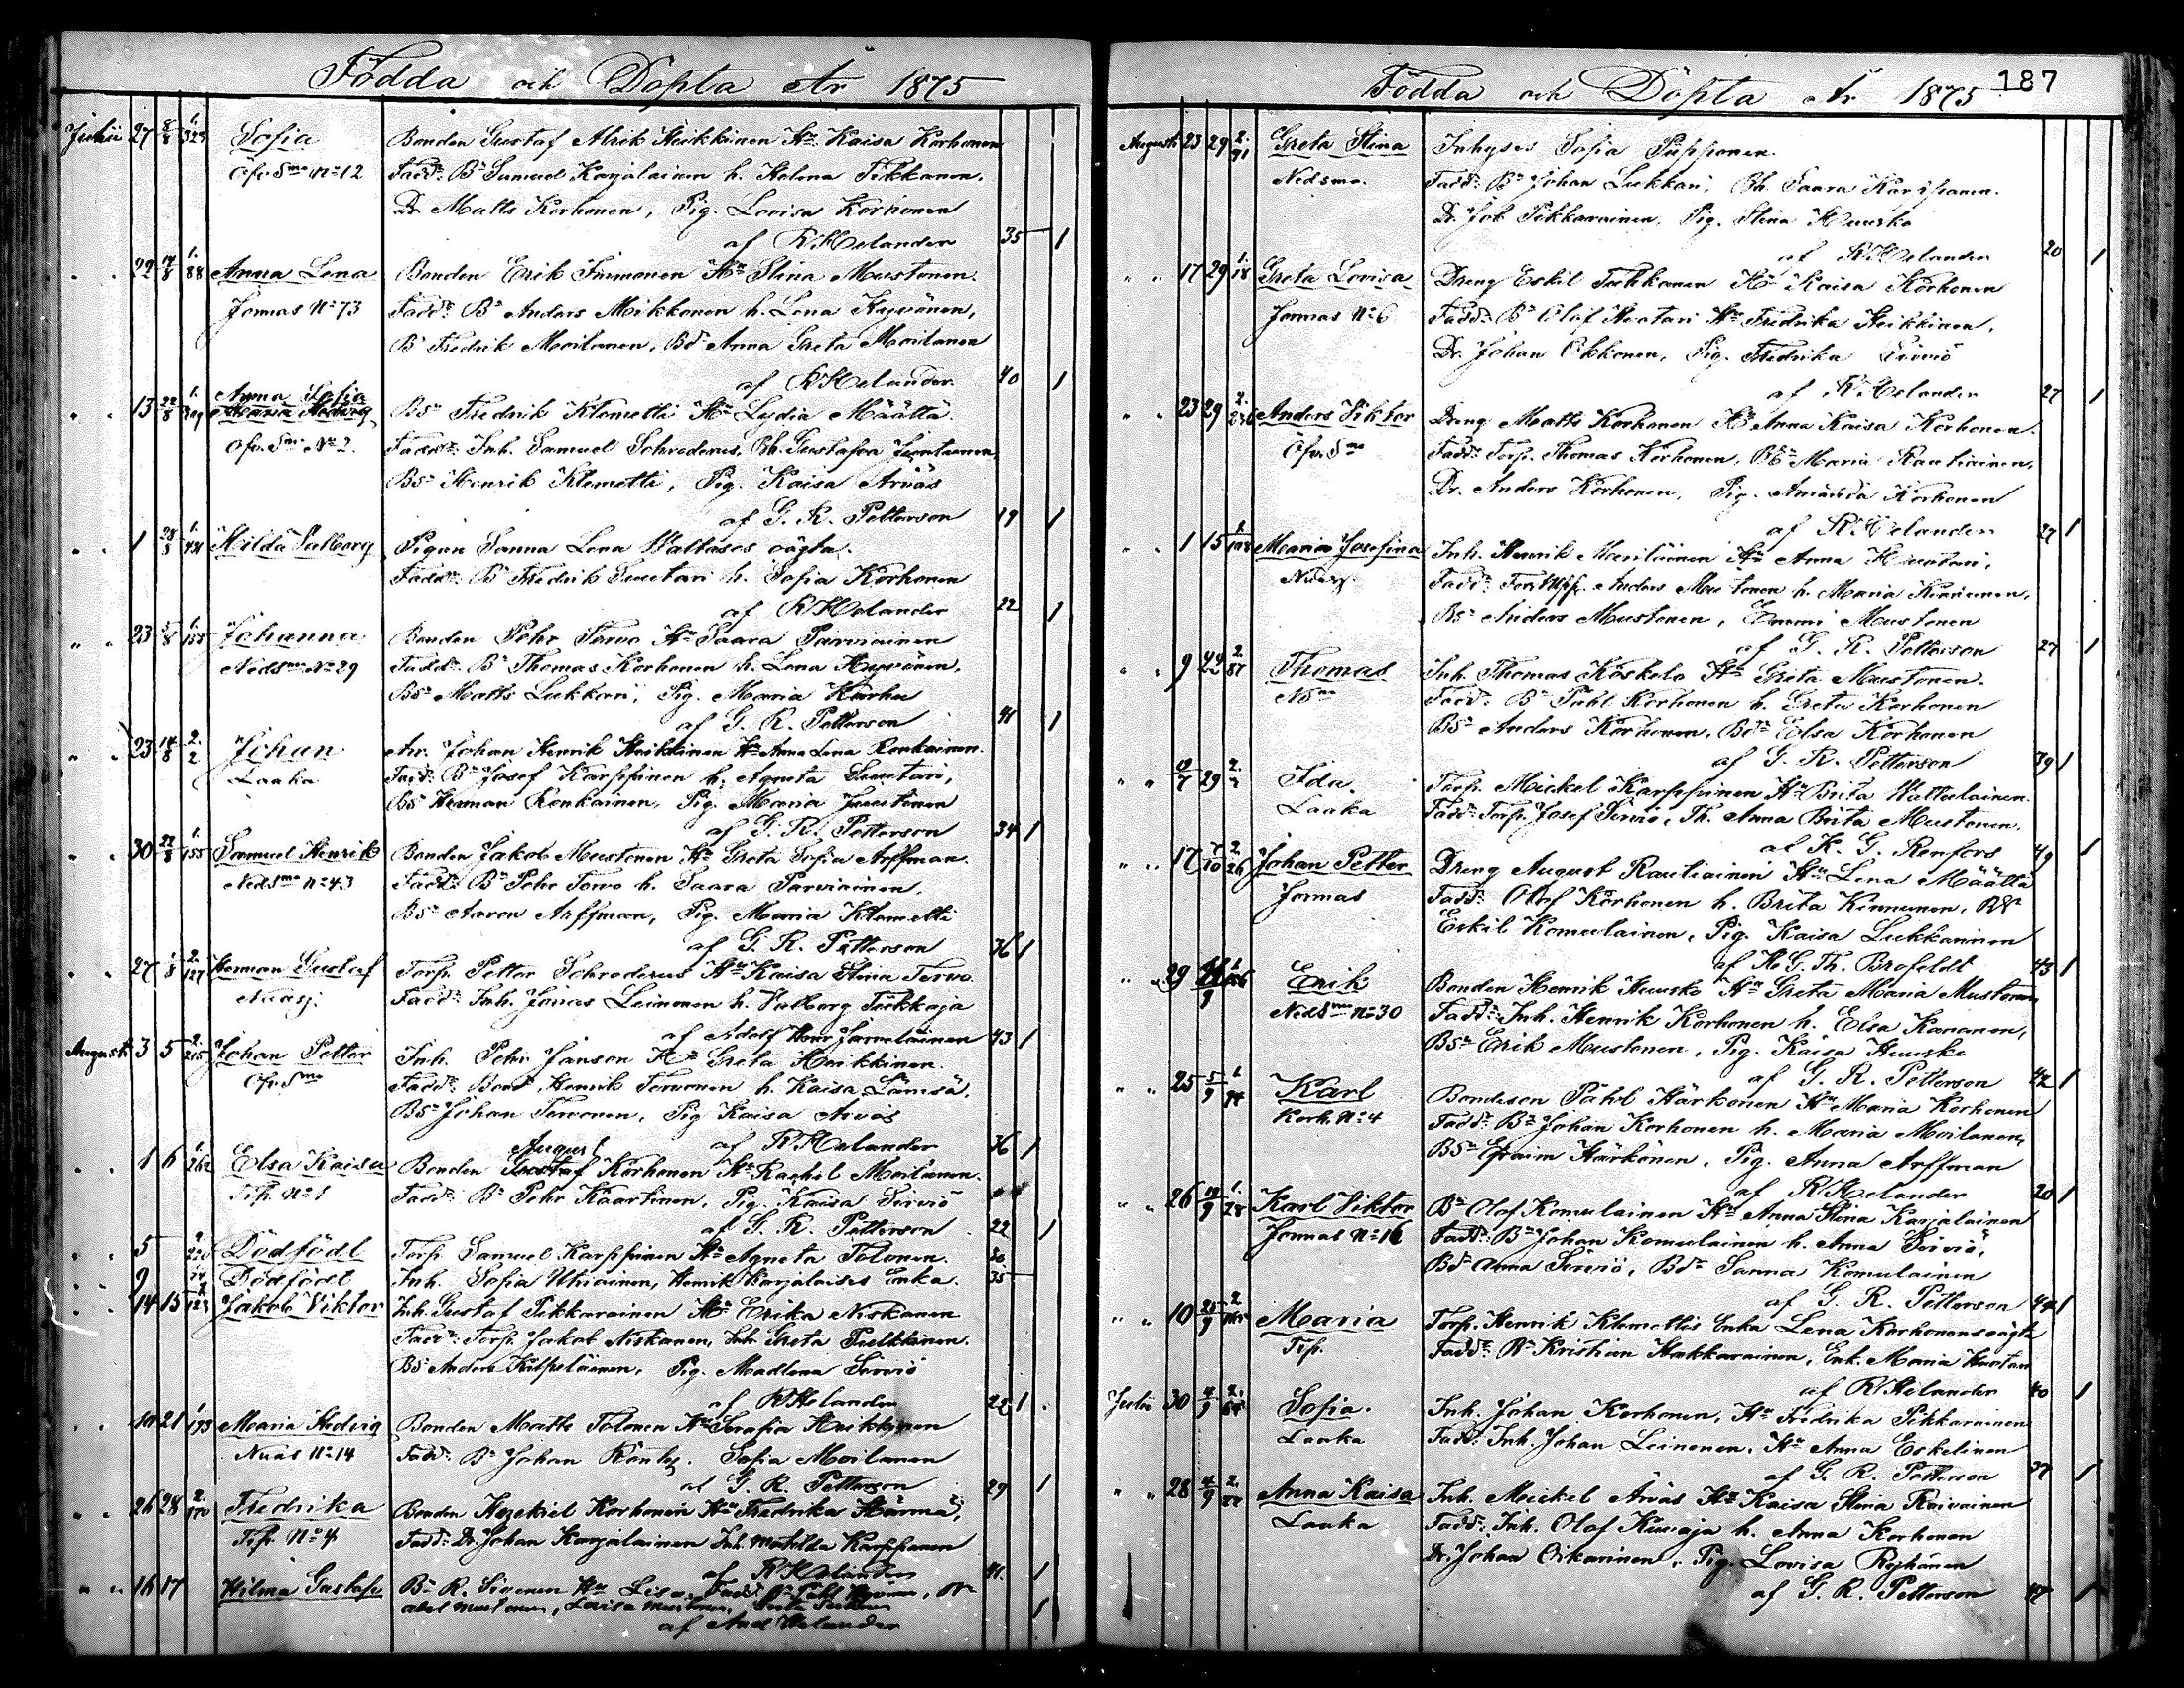 Födda och Döpta År 1875
Julii 27 8/8 1. 323 Sofia Bonden Gustaf Alrik Heikkinen Hu Kaisa Korhonen
Öfv. Smo No 12 Fadd: Bn Samuel Karjalainen h. Helena Tikkanen.
Dr. Matts Korhonen, Pig. Lovisa Korhonen
af K Helander 35 1
" " 22 1. 88 Anna Lena Bonden Erik Immonen Hu Stina Mustonen.
Jormas No 73 Fadd: Bn Anders Mikkonen h. Lena Hyvönen,
Bn Fredrik Moilanen, Bdr Anna Greta Moilanen
af K Helander. 40 1
Anna Sofia
" " 13 22/8 1. 309 Maria Hedvig Bsn Fredrik Klemetti Hu Lydia Määttä
Öfv. Smo No 2. Fadd: Inh. Samuel Schroderus, Bh. Gustafva Juntunen
Bsn Henrik Klemetti, Pig. Kaisa Arvàs
af G. R. Petterson 19 1
" " 1 28/8 Hilda Valborg Pigan Sanna Lena Wattases oägta.
Fadd: Bn Fredrik Suutari h. Sofia Korhonen
af K Helander 22 1
" " 23 Johanna Bonden Pehr Tervo Hu Saara Parviainen
Nedsmo No 29 Fadd: Bn Thomas Korhonen h. Lena Hyvönen.
Bsn Matts Lukkari, Pig. Maria Karhu
af G. R. Petterson 41 1
" " 23 14/8 2. 2 Johan Arr. Johan Henrik Heikkinen Hu Anna Lena Ronkainen.
Laaka Fadd: Bn Josef Karppinen h. Agneta Suutari,
Bsn Herman Ronkainen, Pig. Maria Juntunen
af G. R. Petterson 34 1
" " 30 22/8 1. 155 Samuel Henrik Bonden Jakob Mustonen Hu Greta Sofia Arffman.
Nedsmo No 43 Fadd: Bn Pehr Tervo h. Saara Parviainen,
Bsn Aaron Arffman, Pig. Maria Klemetti
af G. R. Petterson 36 1
" " 27 2. 127 Herman Gustaf Torp. Petter Schroderus Hu Kaisa Stina Tervo
Nuasj. Fadd: Inh. Jonas Leinonen h. Valborg Tuikkaja
af Adolf Henr Jarvelainen 43 1
Augusti 3 5 2. 215 Johan Petter Inh. Pehr Janson Hu Greta Heikkinen.
Öfv. Smo Fadd: Bond. Henrik Tervonen h. Kaisa Lämsä.
Bsn Johan Tervonen, Pig. Kaisa Arvàs
af K Helander 36 1
August
" " 1 6 1. 262 Elsa Kaisa Bonden Gustaf Korhonen Hu Rachel Moilanen.
Tip. No 1 Fadd: Bn Pehr Kaartinen, Pig. Kaisa Sirviö
af G. R. Petterson 22 1
" " 5 Dödfödt Torp. Samuel Karppinen Hu Agneta Tolonen. 30
" " 9 Dödfödt Inh. Sofia Uhiainen, Henrik Karjalaises Enka. 35
" " 14 15 Jakob Viktor Inh. Gustaf Pikkarainen Hu Erika Niskanen
Fadd: Torp. Jakob Niskanen, Inh. Greta Pulkkinen.
Bsn Anders Kilpeläinen, Pig. Madlena Sirviö
af K Helander 22 1
" " 10 21 1. 173 Maria Hedvig Bonden Matts Tolonen Hu Serafia Heikkinen
Nuàs No 14 Fadd: Bn Johan Röntŷ. Sofia Moilanen
af G. R. Petterson 29 1
" " 26 28 Fredrika Bonden Hezekiel Korhonen Hu Fredrika Härmä,
Tip. No 4 Fadd: Dr. Johan Karjalainen Inh. Matilda Karppanen
af K Helander 41. 1
" " 16 17 Hilma Gustafv. Bn R. Sivonen Hu Lisa. Fadd:
Abel Mustonen, Lovisa Mustonen,
af And Helander 1
Födda och Döpta År 1875 187
Augusti 23 29 2. 91 Greta Stina Inhyses Sofia Pipponen.
Nedsmo. Fadd: Bn Johan Lukkari, Bh. Saara Karppanen.
Dr. Job Pikkarainen, Pig. Stina Huusko
af K Helander 20 1
" " 17 29 1. 18 Greta Lovisa Dreng Eskil Tuhkanen Hu Kaisa Korhonen
Jormas No 6 Fadd: Bn Olof Huotari Hu Fredrika Heikkinen,
Dr. Johan Okkonen, Pig. Fredrika Sirviö
af K Helander 27 1
" " 23 29 2. 236 Anders Viktor Dreng Matts Korhonen Hu Anna Kaisa Korhonen.
Öfv. Smo Fadd: Torp. Thomas Korhonen, Maria Rautiainen,
Dr. Anders Korhonen, Pig. Amanda Korhonen
af K Helander 27 1
" " 1 15 Maria Josefina Inh. Henrik Meriläinen Hu Anna Huotari,
Fadd: Forstupp. Anders Mustonen h. Maria Kinnunen,
Bsn Anders Mustonen, Emmi Mustonen
af G. R. Petterson 27 1
" " 9 22 2. 87 Thomas Inh. Thomas Koskelo Hu Greta Mustonen.
Nsmo Fadd: Bn Påhl Korhonen h. Greta Korhonen
Bsn Anders Korhonen, Bdr Elsa Korhonen
af G. R. Petterson 39 1
" " 29 Ida. Torp. Mickel Karppinen Hu Brita Wattulainen.
Laaka Fadd: Torp. Josef Sirviö, Th. Anna Brita Mustonen.
af K. G. Renfors 49 1
" " 17 2. 26 Johan Petter Dreng August Rautiainen Hu Lena Määttä
Jormas Fadd: Olof Korhonen h. Brita Kinnunen,
Eskil Komulainen, Pig. Kaisa Lukkarinen
af K. G. Th. Brofeldt 43 1
" " 29 Erik Bonden Henrik Huusko Hu Greta Maria Mustonen
Nedsmo No 30 Fadd: Inh. Henrik Korhonen h. Elsa Kananen,
Bsn Erik Mustonen, Pig. Kaisa Huusko
af G. R. Petterson 42 1
" " 25 5/9 Karl Bondeson Påhl Härkönen Hu Maria Korhonen
Korh. No 4 Fadd: Bn Johan Korhonen h. Maria Moilanen,
Bsn Efraim Härkönen, Pig. Anna Arffman
af K Helander 20 1
" " 26 1. 28 Karl Viktor Bn Olof Komulainen Hu Anna Stina Karjalainen
Jormas No 16 Fadd: Bn Johan Komulainen h. Anna Sirviö,
Bdr Anna Sirviö, Bdr Sanna Komulainen
af G. R. Petterson 44 1
" " 10 25/9 Maria Torp. Henrik Klemettis Enka Lena Korhonens oägta
Tip. Fadd: Bn Kristian Hakkarainen, Enk. Maria Huotari
af K Helander 40 1
Julii 30 4/9 Sofia. Inh. Johan Korhonen, Hu Fredrika Pikkarainen
Laaka Fadd: Inh. Johan Leinonen, Hu Anna Eskelinen
af G. R. Petterson 27 1
" " 28 4/9 Anna Kaisa Inh. Mickel Arvàs Hu Kaisa Stina Raivainen
Laaka Fadd: Inh. Olof Kuvaja h. Anna Korhonen
Dr. Johan Oikarinen, Pig. Lovisa Ryhänen
af G. R. Petterson 1